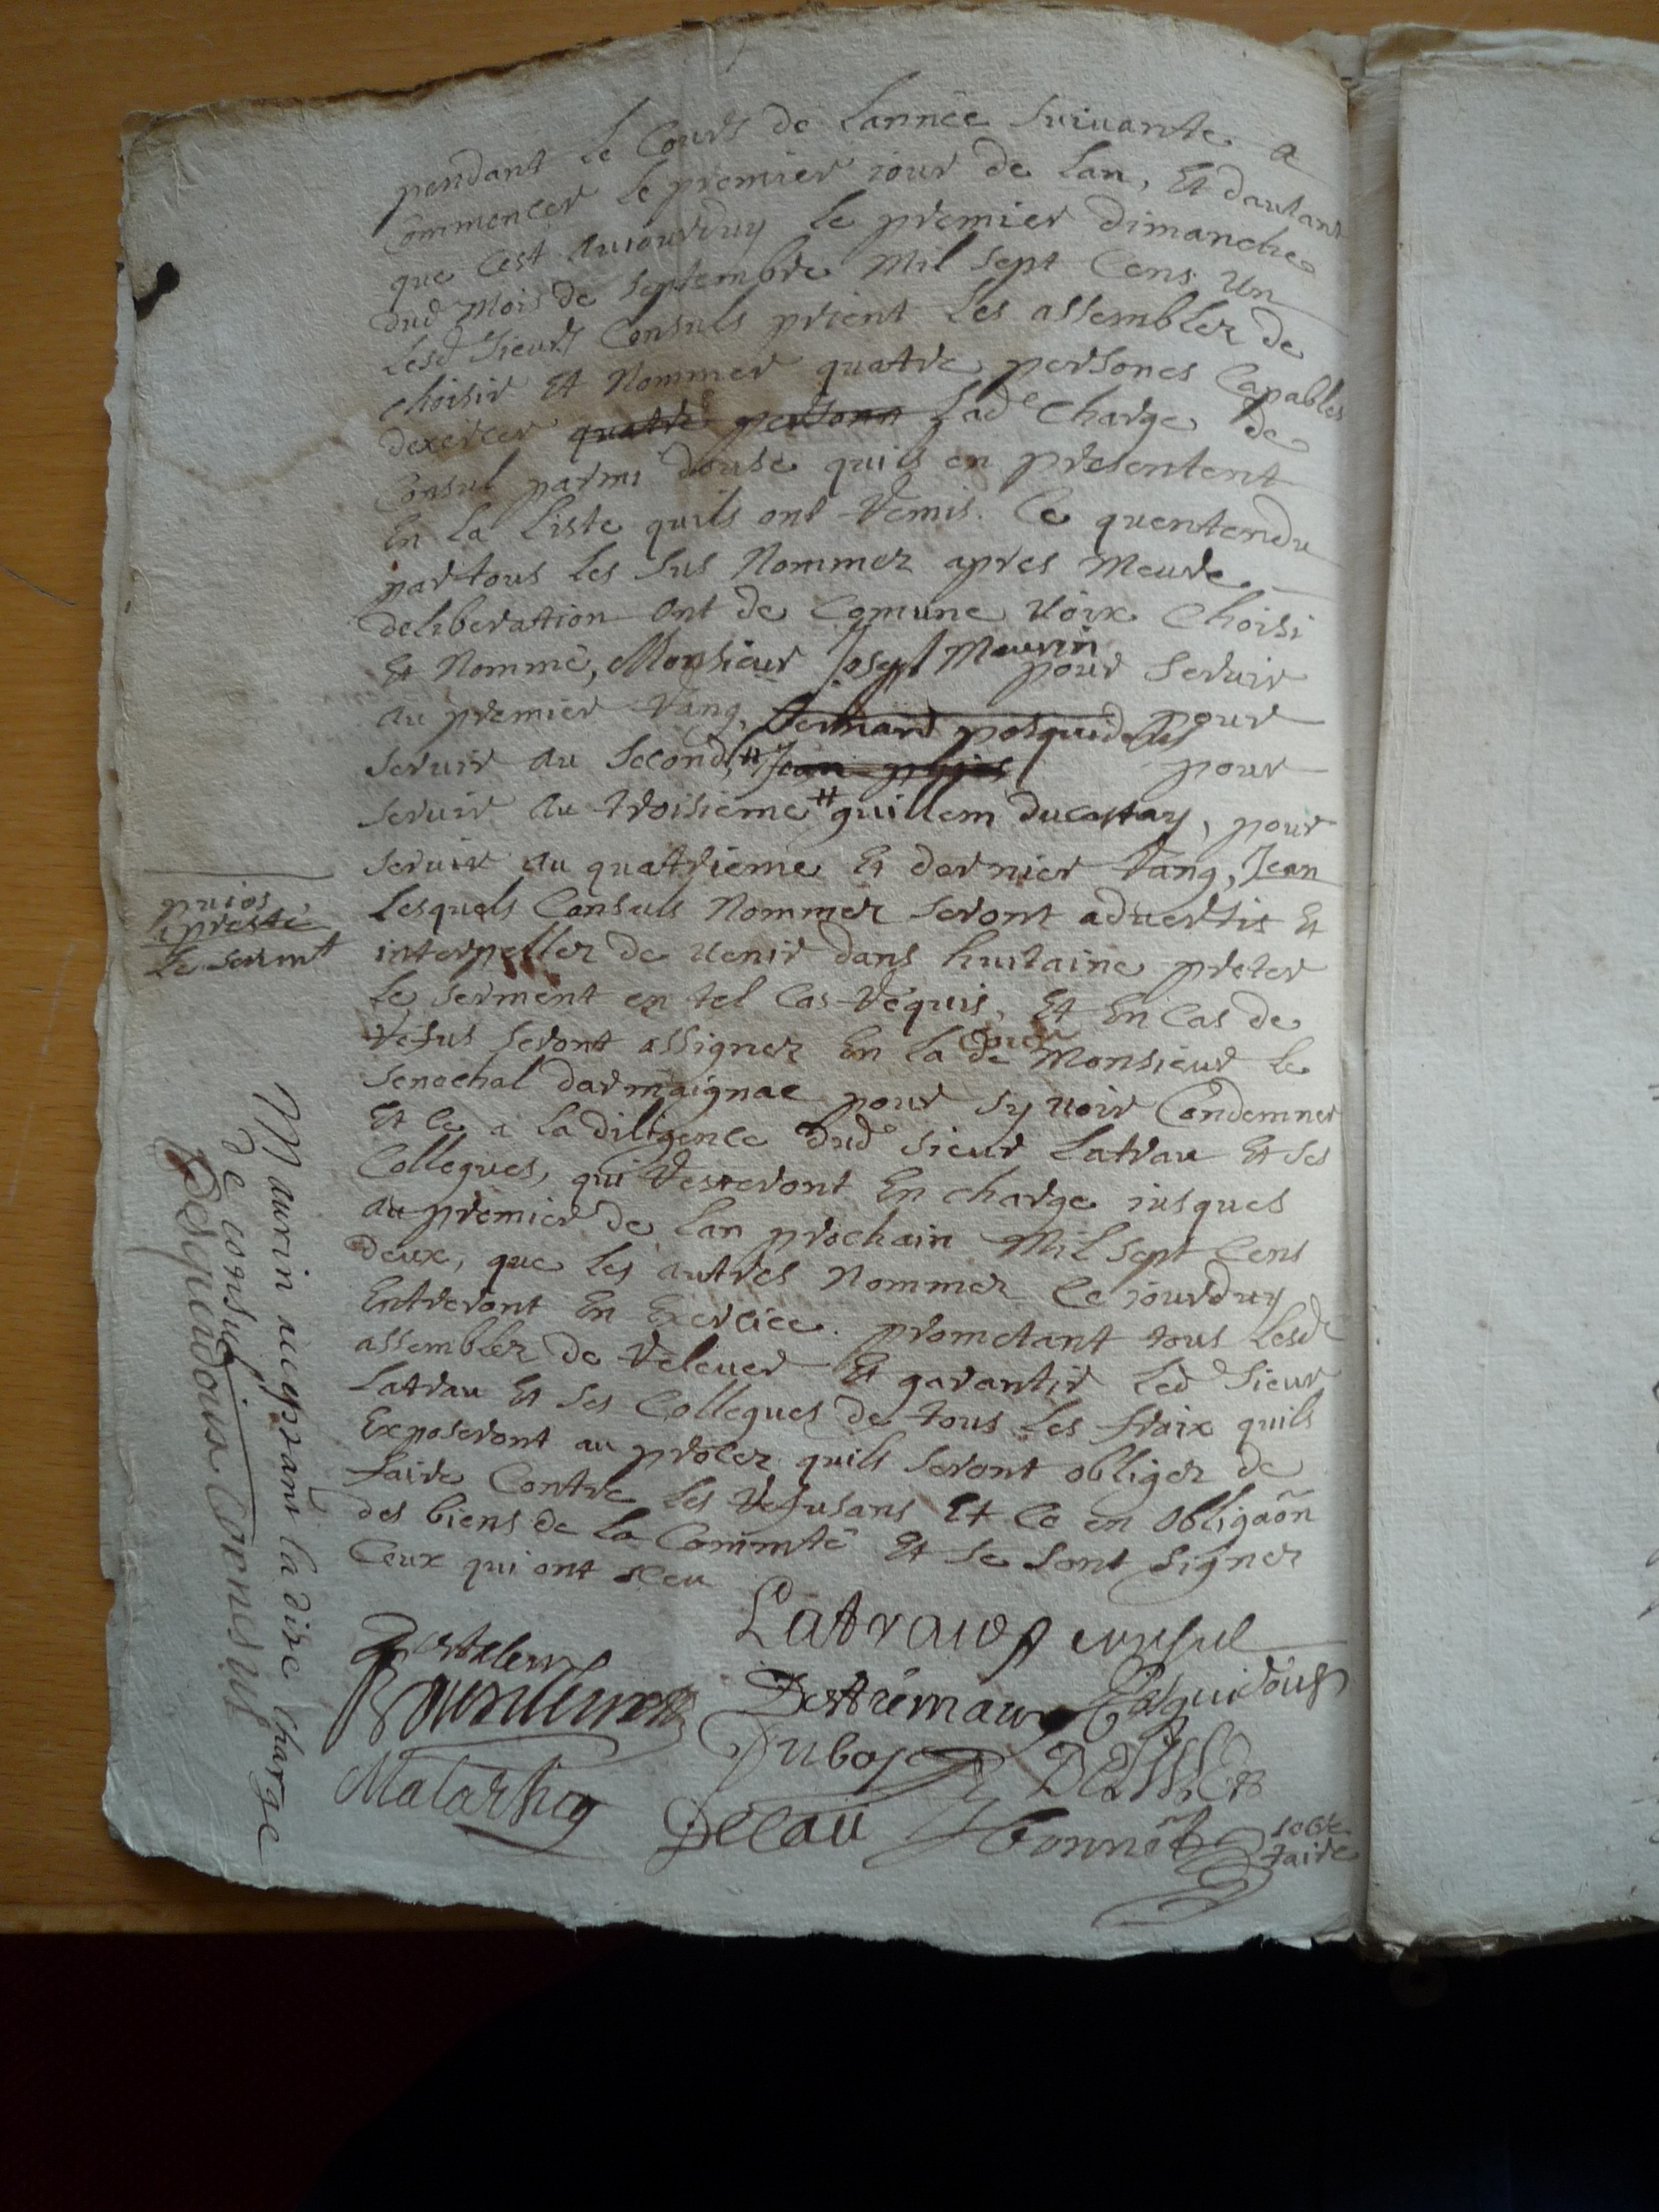 pendant le Cours de Lannee Suivante a
Commencer le premier iour de Lan, Et dautant
que Cest aujourduy le premier dimanche
dud mois de septembre Mil sept Cens Un
Lesd Sieurs Consuls prient Les assemblez de
choisir Et Nommer quatre persones Capables
dexercer quatre person Lade Charge de
Consul parmi douse quils en presentent
En la Liste quils ont remis. Ce quentendu
par tous Les sus Nommez apres Meure
deliberation ont de Comune Uoix Choisi
Et Nommé, Monsieur Joseph Maurin pour Seruir
au premier rang, Bernard posquidoux pour
Seruir au Second, # Jean puios pour
Seruir au troisieme # guillem ducastay, pour
Seruir au quatrieme Et dernier rang, Jean
puios
a presté
Le serm.t
Lesquels Consuls Nommez Seront aduertis Et
interpellez de Uenir dans huitaine preter
le serment en tel Cas requis, Et En Cas de
refus Seront assignez En la Cour de Monsieur le
Senechal darmaignac pour sy uoir Condemner
Et ce a la diligence dud Sieur Latrau Et Ses
Collegues, qui resteront En charge iusques
au premier de Lan prochain Mil sept Cens
deux, que les autres Nommez Ce jourduy
Entreront En Exercice. prometant tous Lesd
assemblez de releuer Et garantir Led Sieur
Latrau Et Ses Collegues de tous Les fraix quils
Exposeront au procez quils Seront obligez de
faire Contre Les refusans Et Ce en obligaõn
des biens de la Commté Et Se Sont Signez
Ceux qui ont sceu
Maurin acceptant ladite charge
de consul
posquidoux
Latrau consul
Destremau posquidoux
Dubosc
Delau Bonnet